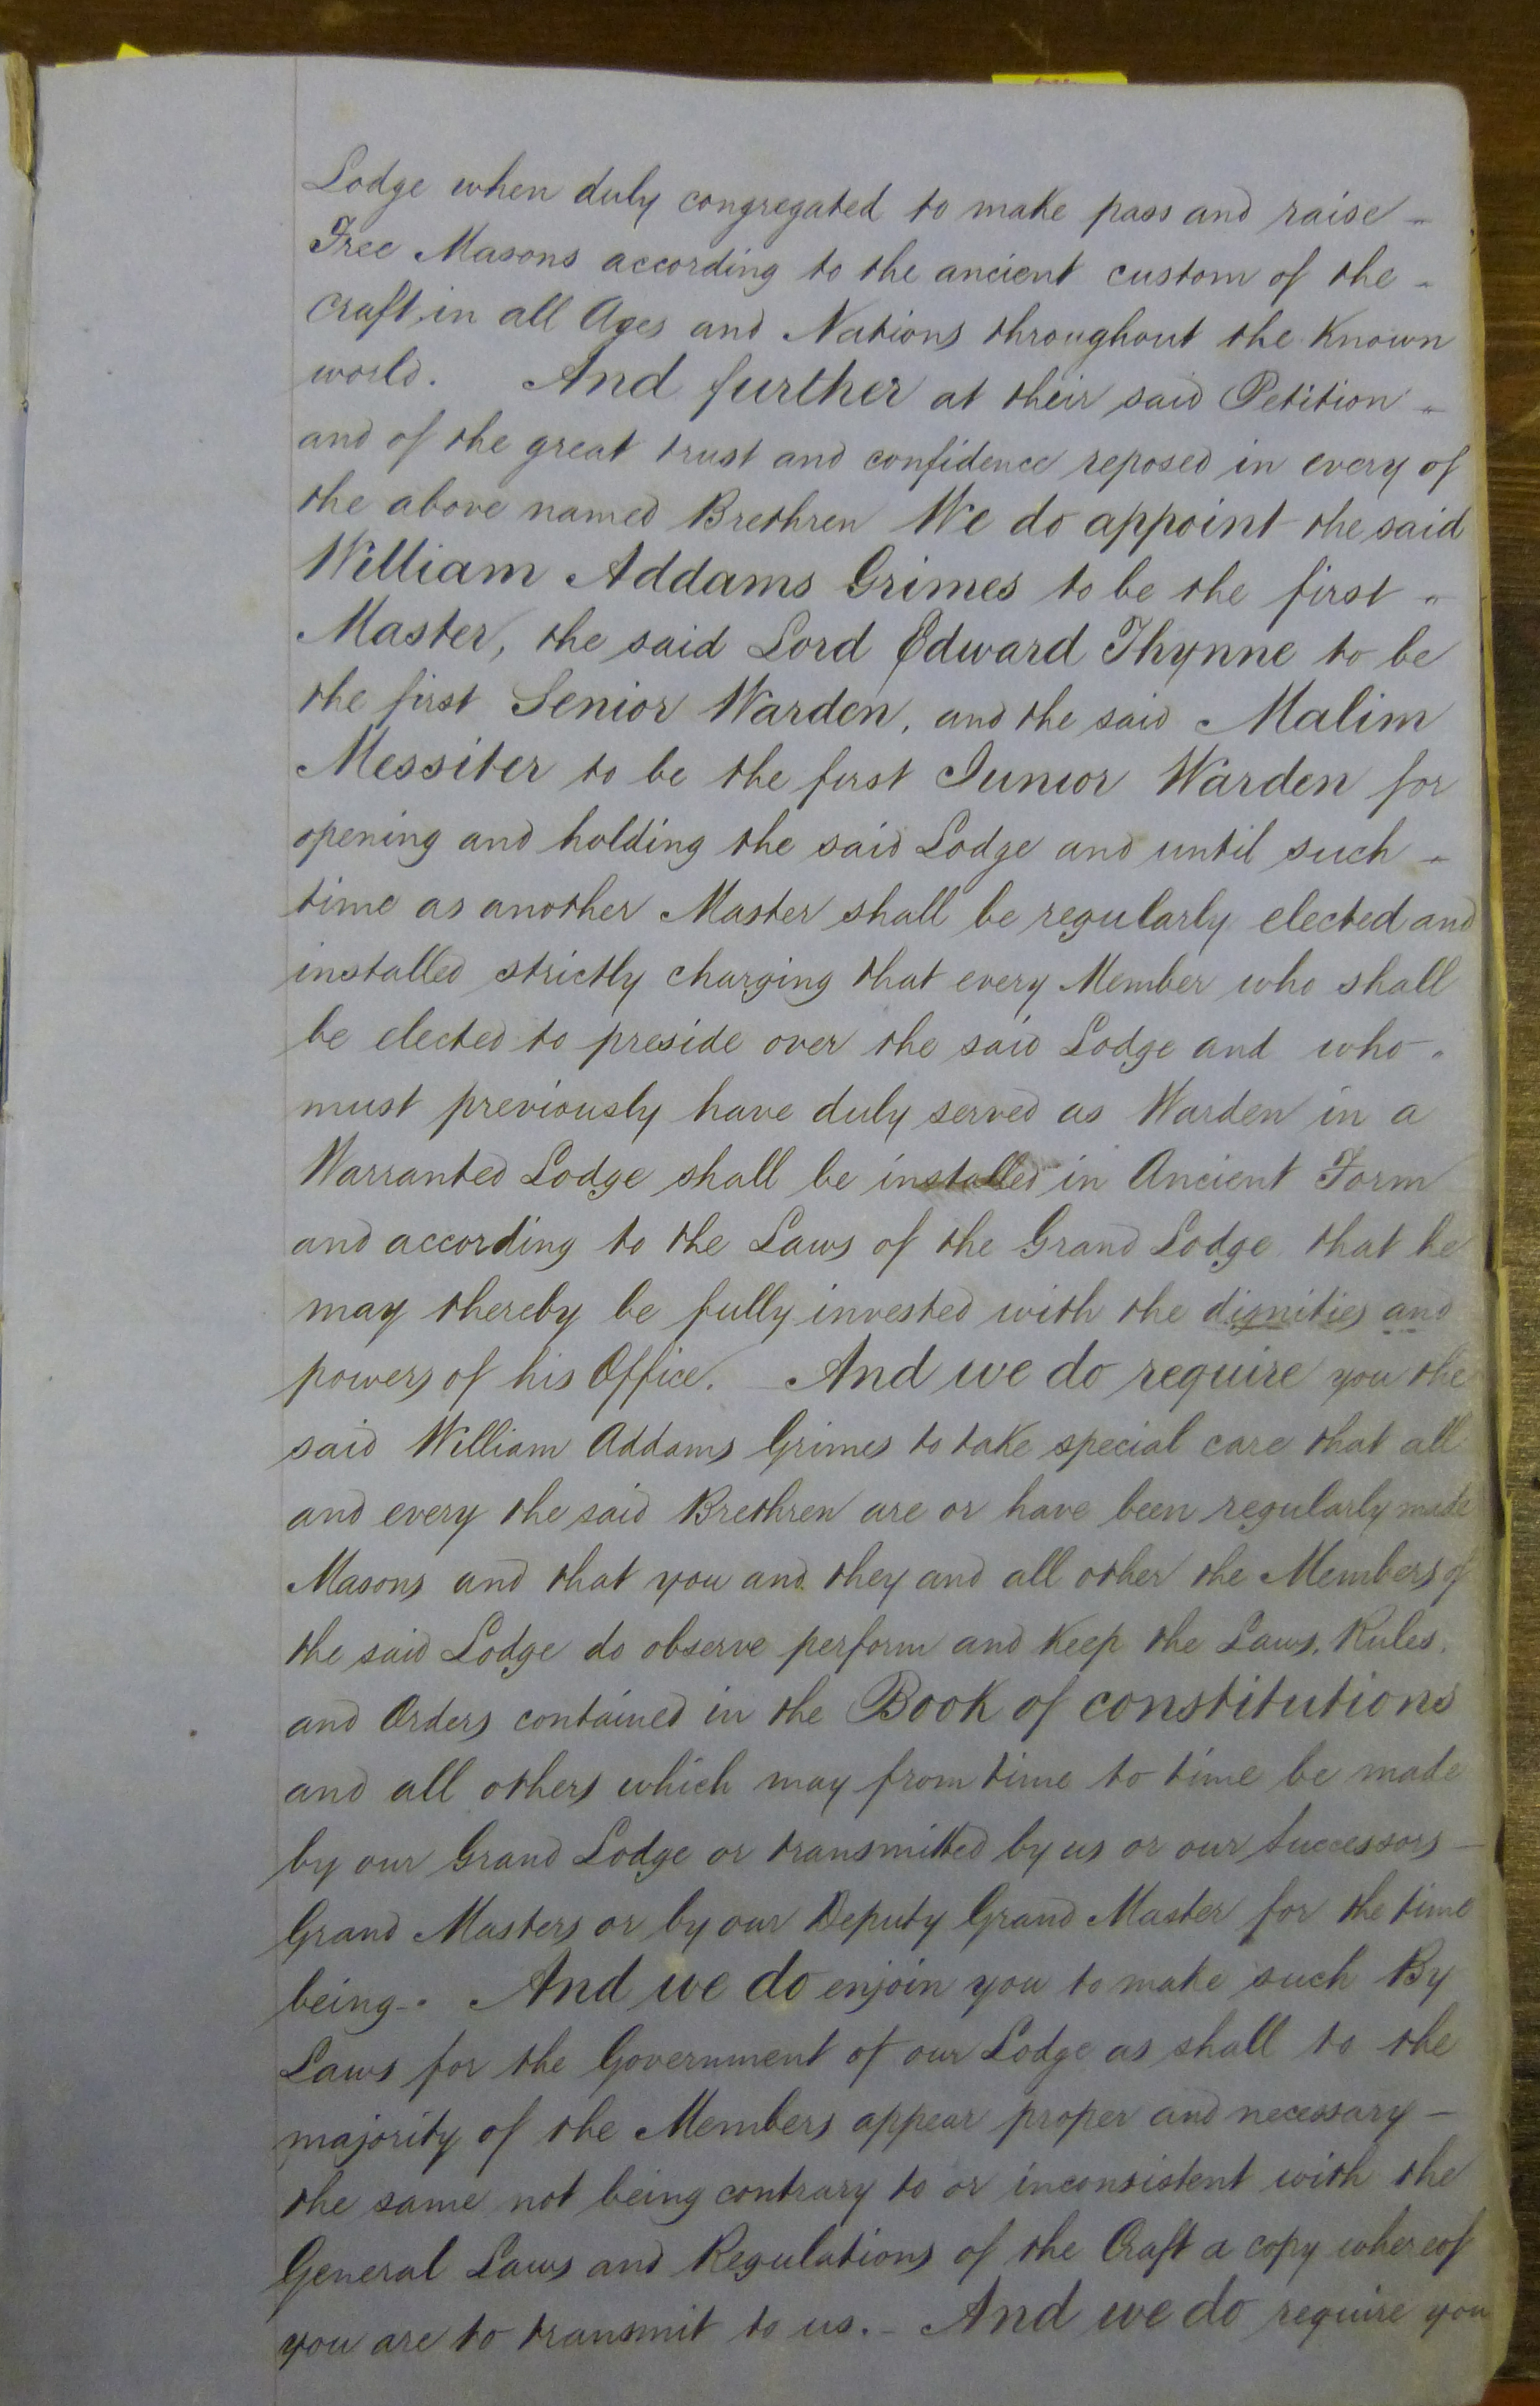 Lodge when duly congregated to make pass and raise -
Free Masons according to the ancient custom of the -
Craft in all Ages and Nations throughout the known
world. And further at their said Petition -
and of the great trust and confidence reposed in every of
the above named Brethren We do appoint the said
William Addams Grimes to be the first -
Master, the said Lord Edward Thynne to be
the first Senior Warden, and the said Malim
Messiter to be the first Junior Warden for
opening and holding the said Lodge and until such -
time as another Master shall be regularly elected and
installed strictly charging that every Member who shall
be elected to preside over the said Lodge and who -
must previously have duly served as Warden in a
Warranted Lodge shall be installed in Ancient Form
and according to the Laws of the Grand Lodge that he
may thereby be fully invested with the dignities and
powers of his Office. And we do require you the
said William Addams Grimes to take special care that all
and every the said Brethren are or have been regularly made
Masons and that you and they and all other the Members of
the said Lodge do observe perform and keep the Laws, Rules,
and Orders contained in the Book of constitutions
and all others which may from time to time be made
by our Grand Lodge or transmitted by us or our Successors -
Grand Masters or by our Deputy Grand Master for the time
being -. And we do enjoin you to make such By
Laws for the Government of our Lodge as shall to the
majority of the Members appear proper and necessary -
the same not being contrary to or inconsistent with the
General Laws and Regulations of the Craft a copy whereof
you are to transmit to us. - And we do require you